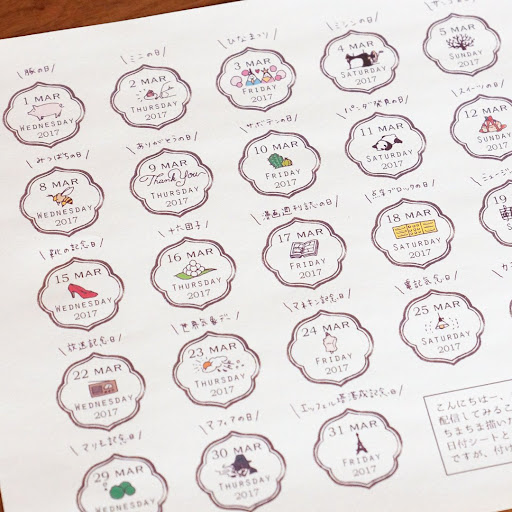 豚の日
1 MAR
WEDNESDAY
2017
ミニの日
2 MAR
THURSDAY
2017
ひなまつり
3 MAR
FRIDAY
2017
ミシンの日
4 MAR
SATURDAY
2017
5 MAR
SUNDAY
2017
みつばちの日
8 MAR
WEDNESDAY
2017
ありがとうの日
9 MAR
Thank You
THURSDAY
2017
サボテンの日
10 MAR
FRIDAY
2017
パンダ発見の日
11 MAR
SATURDAY
2017
スイーツの日
12 MAR
SUNDAY
2017
靴の記念日
15 MAR
WEDNESDAY
2017
十六団子
16 MAR
THURSDAY
2017
漫画週刊誌の日
17 MAR
FRIDAY
2017
点字ブロックの日
18 MAR
SATURDAY
2017
ミュージ
19
放送記念日
22 MAR
WEDNESDAY
2017
世界気象デー
23 MAR
THURSDAY
2017
マネキン記念日
24 MAR
FRIDAY
2017
電気記念日
25 MAR
SATURDAY
2017
マリモ記念日
29 MAR
WEDNESDAY
2017
マフィアの日
30 MAR
THURSDAY
2017
エッフェル塔落成記念日
31 MAR
FRIDAY
2017
こんにちはー。
配信してみるこ
ちまちま描いた
日付シートと
ですが、付け